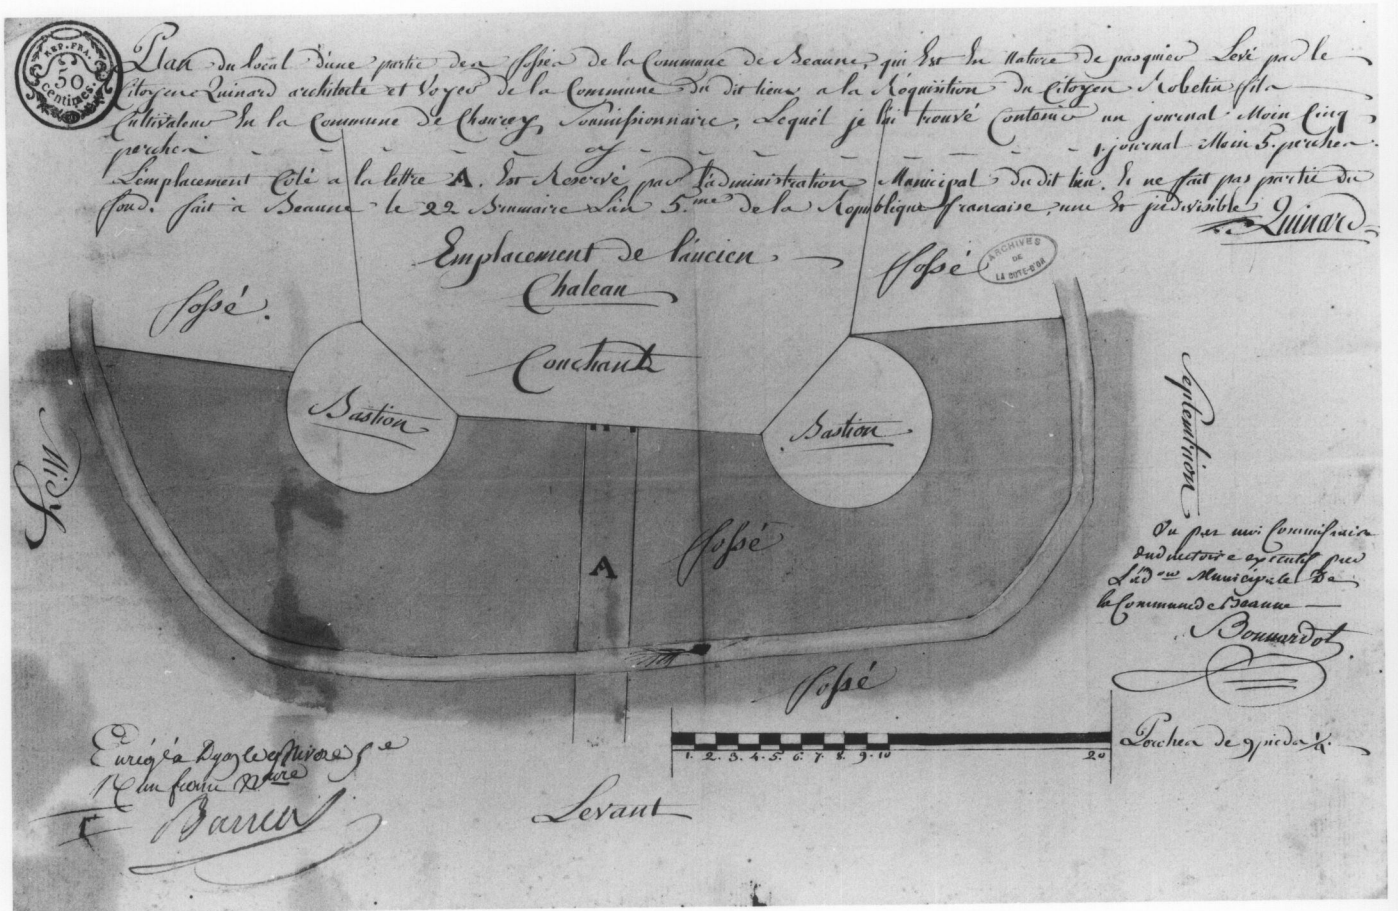 REP. FRA.
50
centimes.
Plan du local d'une partie des fossés de la Commune de Beaune, qui Est En Nature de pasquier Levé par le
Citoyen Quinard architecte et Voyer de la Commune du dit lieu a la Réquisition du Citoyen Robelin fils
Cultivateur En la Commune de Chorey Soumissionnaire, Lequel je lai trouvé Contenir un journal Moin Cinq
perches 1. journal Moin 5. perches.
L'emplacement Coté a la lettre A. Est Réservé par l'administration Municipal du dit lieu. Et ne fait pas partie du
fond. fait à Beaune le 22 Brumaire L'an 5.me de la République francaise, une Et jndivisible
Quinard
Emplacement de l'ancien
Chateau
ARCHIVES
DE
LA COTE-D'OR
fossé
fossé.
Couchant
Bastion
Bastion
Septentrion
Midy
A
fossé
Vu par moi Commissaire
du directoire exécutif près
L'ad.on Municipale De
la Commune de Beaune
Bonnardot
fossé
1. 2. 3. 4. 5. 6. 7. 8. 9. 10 20
Perches de 9 pieds ½.
Levant